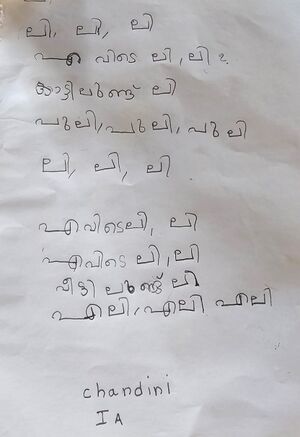 ലി, ലി, ലി
എവിടെ ലി, ലി?
കാട്ടിലുണ്ട് ലി
പുലി, പുലി, പുലി
ലി, ലി, ലി
എവിടെലി, ലി
എവിടെ ലി, ലി
വീട്ടിലുണ്ട് ലി
എലി, എലി എലി
chandini
I A